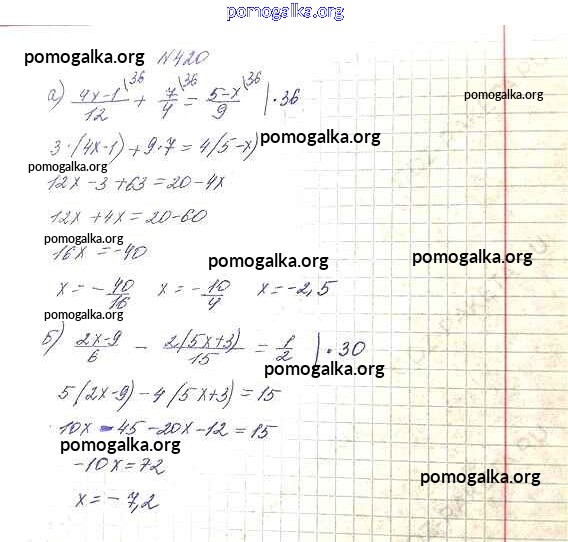 pomogalka.org
pomogalka.org №420
а) (4x-1)/12 \36 + 7/4 \36 = (5-x)/9 \36 | · 36 pomogalka.org
3·(4x-1)+9·7=4(5-x) pomogalka.org
pomogalka.org
12x-3+63=20-4x
12x+4x=20-60
pomogalka.org
16x=-40 pomogalka.org pomogalka.org
x=-40/16 x=-10/4 x=-2,5
pomogalka.org
б) (2x-9)/6 - 2(5x+3)/15 = 1/2 | · 30
pomogalka.org
5(2x-9)-4(5x+3)=15
10x-45-20x-12=15
pomogalka.org
-10x=72 pomogalka.org
x=-7,2